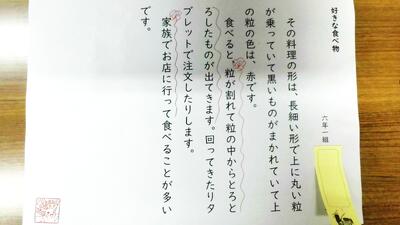 好きな食べ物
六年一組
その料理の形は、長細い形で上に丸い粒
が乗っていて黒いものがまかれていて上
の粒の色は、赤です。
食べると、粒が割れて粒の中からとろと
ろしたものが出てきます。回ってきたりタ
ブレットで注文したりします。
家族でお店に行って食べることが多い
です。